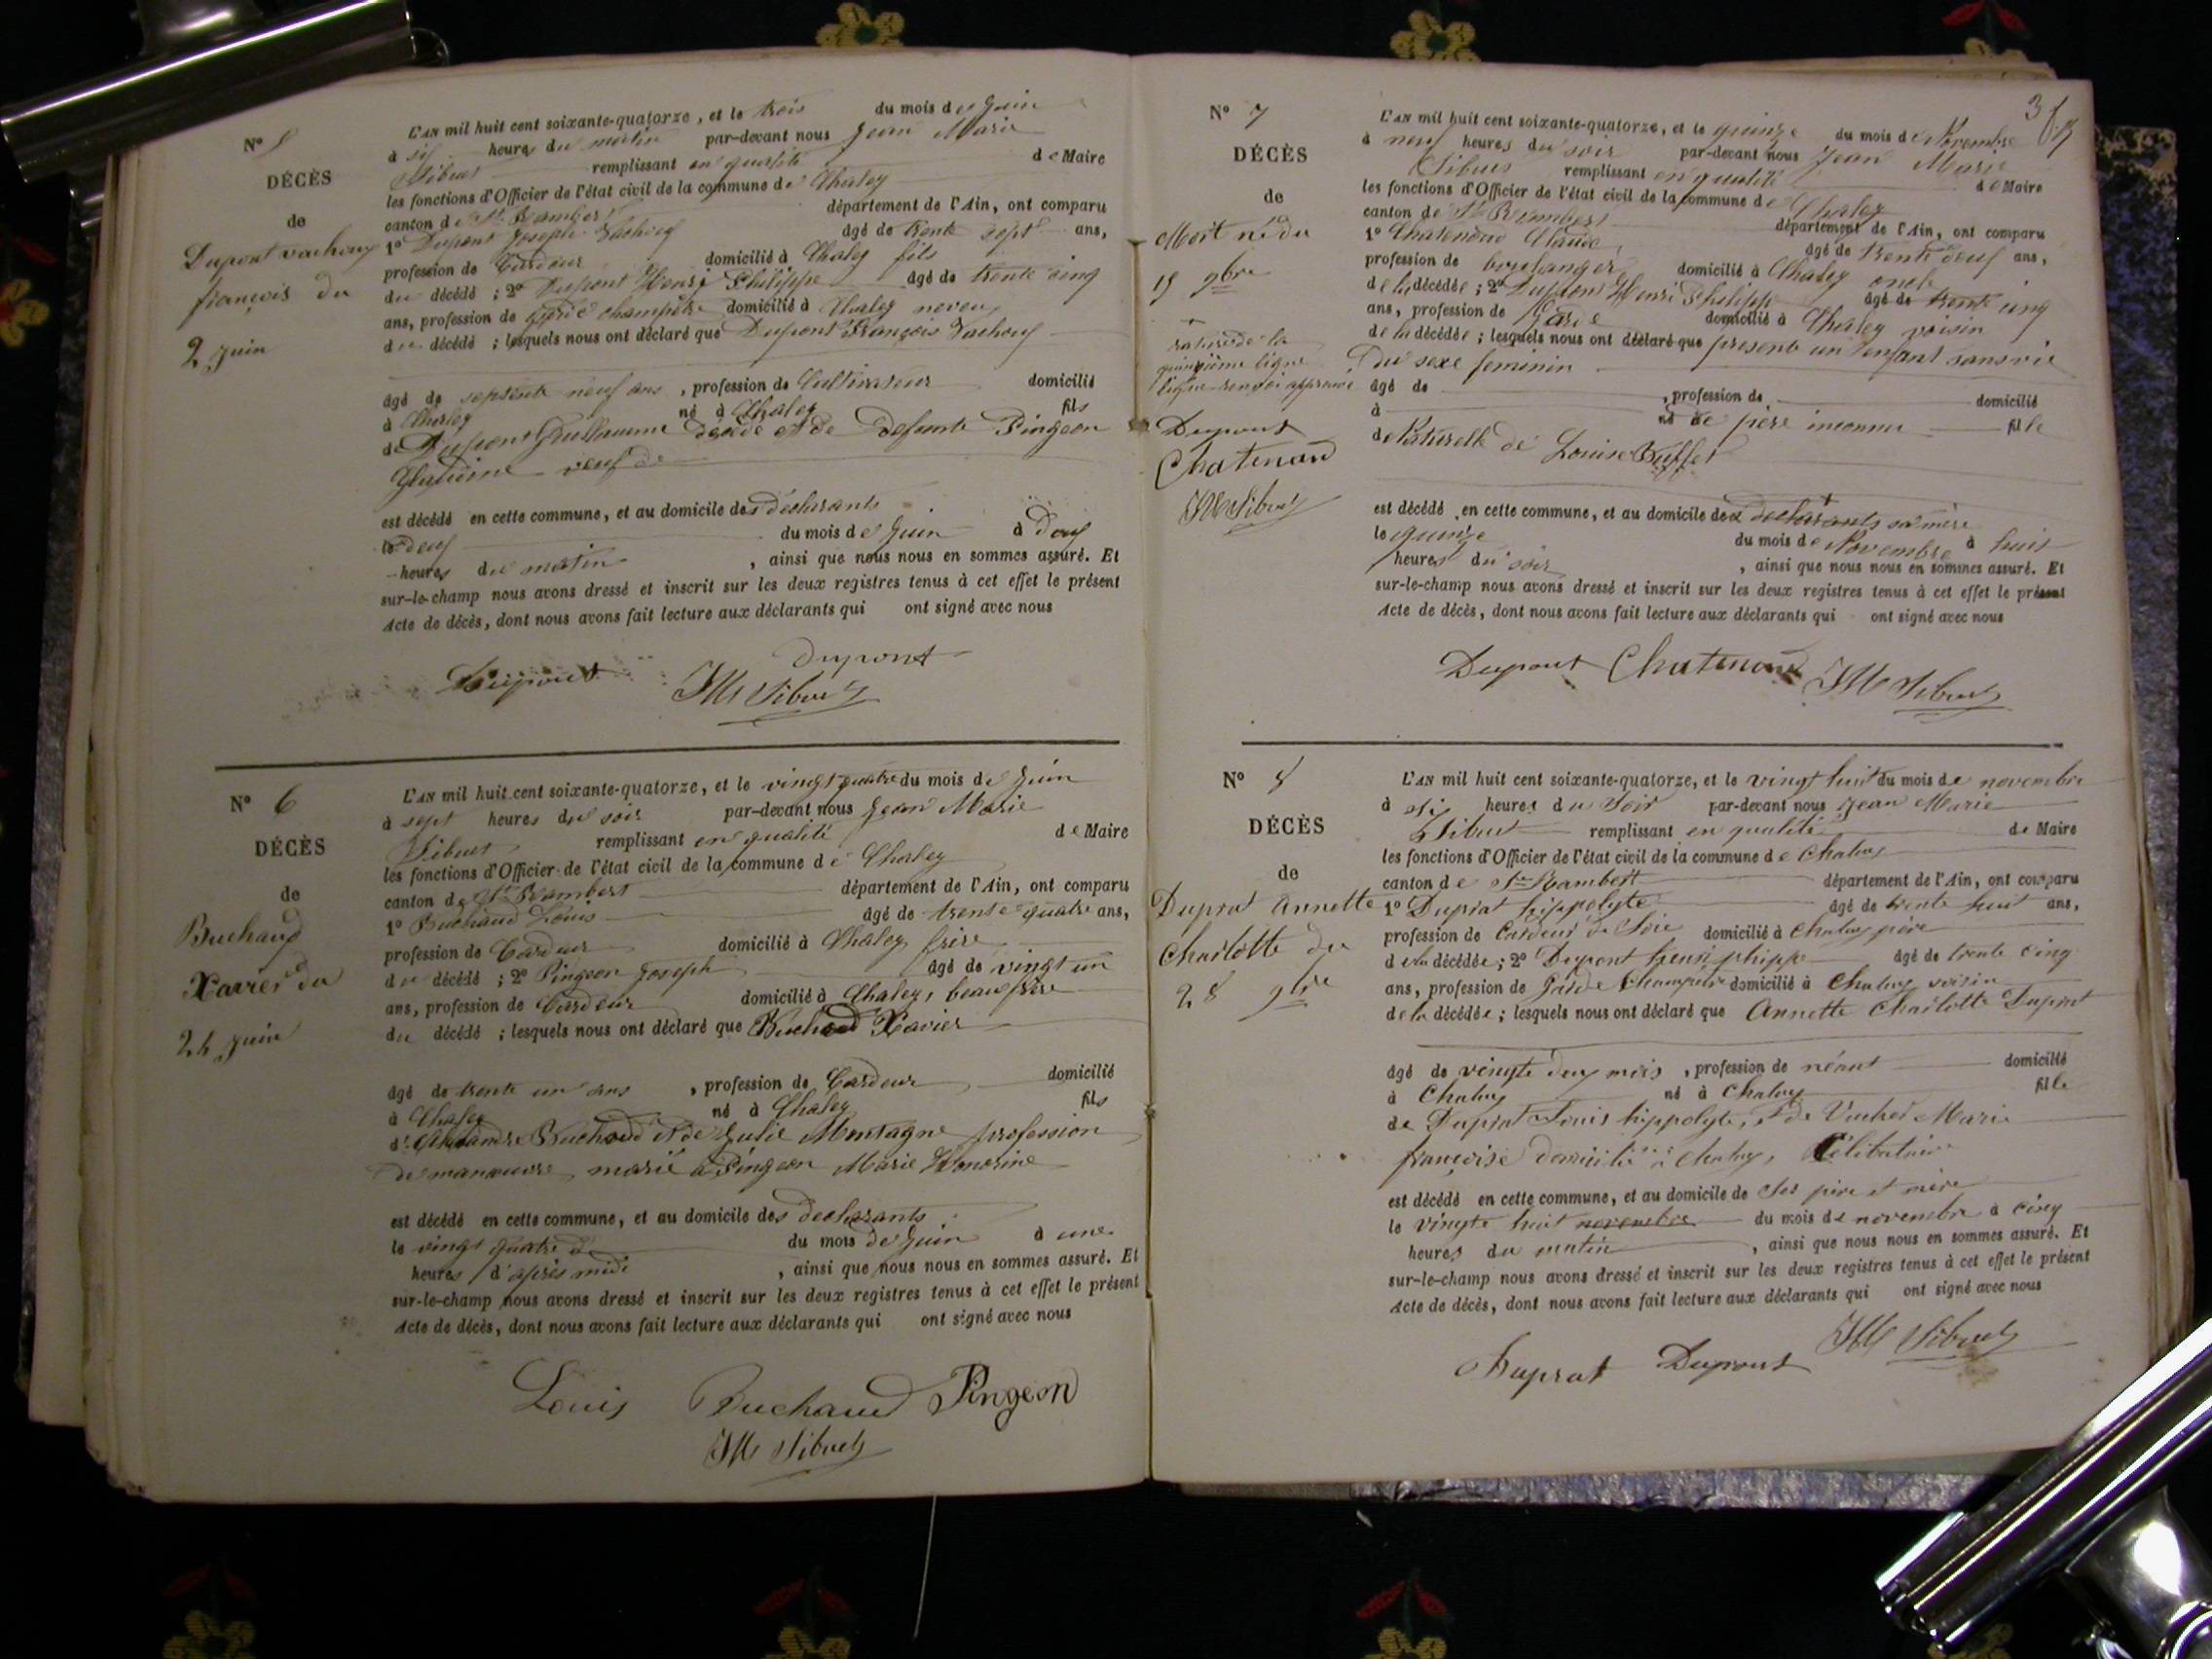 N° 5
DÉCÈS
de
Dupont vachoux
françois du
2 juin
L'AN mil huit cent soixante-quatorze, et le trois du mois de Juin
à six heures du matin par-devant nous Jean Marie
Sibuet remplissant en qualité de Maire
les fonctions d'Officier de l'état civil de la commune de Chaley
canton de St Rambert département de l'Ain, ont comparu
1° Dupont Joseph Vachoux âgé de trente sept ans,
profession de Cardeur domicilié à Chaley fils
du décédé ; 2° Dupont Henri Philippe âgé de trente cinq
ans, profession de garde champêtre domicilié à Chaley neveu
du décédé ; lesquels nous ont déclaré que Dupont François Vachoux
âgé de septente neuf ans, profession de Cultivateur domicilié
à Chaley né à Chaley fils
de Dupont Guillaume décédé et de defunte Pingeon
veuf de
est décédé en cette commune, et au domicile des déclarants
le deux du mois de Juin à deux
heures du matin, ainsi que nous nous en sommes assuré. Et
sur-le-champ nous avons dressé et inscrit sur les deux registres tenus à cet effet le présent
Acte de décès, dont nous avons fait lecture aux déclarants qui ont signé avec nous
Dupont
Dupont JM Sibuet
N° 6
DÉCÈS
de
Buchaud
Xavier du
24 juin
L'AN mil huit cent soixante-quatorze, et le vingt quatre du mois de Juin
à sept heures du soir par-devant nous Jean Marie
Sibuet remplissant en qualité de Maire
les fonctions d'Officier de l'état civil de la commune de Chaley
canton de St Rambert département de l'Ain, ont comparu
1° Buchaud Louis âgé de trente quatre ans,
profession de Cardeur domicilié à Chaley frère
du décédé ; 2° Pingeon Joseph âgé de vingt un
ans, profession de Cardeur domicilié à Chaley, beau frère
du décédé ; lesquels nous ont déclaré que Buchaud Xavier
âgé de trente un ans, profession de Cardeur domicilié
à Chaley né à Chaley fils
d' Alexandre Buchaud et de Julie Montagne profession
de manoeuvre, marié à Pingeon Marie Honorine
est décédé en cette commune, et au domicile des declarants
le vingt quatre du mois de Juin à une
heures d'après midi, ainsi que nous nous en sommes assuré. Et
sur-le-champ nous avons dressé et inscrit sur les deux registres tenus à cet effet le présent
Acte de décès, dont nous avons fait lecture aux déclarants qui ont signé avec nous
Louis Buchaud Pingeon
JM Sibuet
N° 7
DÉCÈS
de
Mort né du
15 9bre
rature de la
quinzième ligne
Dupont
Chatenoud
JM Sibuet
L'AN mil huit cent soixante-quatorze, et le quinze du mois de Novembre
à neuf heures du soir par-devant nous Jean Marie
Sibuet remplissant en qualité de Maire
les fonctions d'Officier de l'état civil de la commune de Chaley
canton de St Rambert département de l'Ain, ont comparu
1° Chatenoud Claude âgé de trente deux ans,
profession de boulanger domicilié à Chaley oncle
de la décédée ; 2° Dupont Henri Philippe âgé de trente cinq
ans, profession de Garde domicilié à Chaley voisin
de la décédée ; lesquels nous ont déclaré que présenté un enfant sans vie
du sexe feminin
âgé de, profession de domicilié
à né de père inconnu fille
de Naturelle de Louise Buffet
est décédé en cette commune, et au domicile des declarants sa mère
le quinze du mois de Novembre à huit
heures du soir, ainsi que nous nous en sommes assuré. Et
sur-le-champ nous avons dressé et inscrit sur les deux registres tenus à cet effet le présent
Acte de décès, dont nous avons fait lecture aux déclarants qui ont signé avec nous
Dupont Chatenoud JM Sibuet
N° 8
DÉCÈS
de
Duprat Annette
Charlotte du
28 9bre
L'AN mil huit cent soixante-quatorze, et le vingt huit du mois de novembre
à six heures du soir par-devant nous Jean Marie
Sibuet remplissant en qualité de Maire
les fonctions d'Officier de l'état civil de la commune de Chaley
canton de St Rambert département de l'Ain, ont comparu
1° Duprat hippolyte âgé de trente huit ans,
profession de Cardeur de Soie domicilié à Chaley père
de la décédée ; 2° Dupont henri phippe âgé de trente cinq
ans, profession de Garde Champêtre domicilié à Chaley voisin
de la décédée ; lesquels nous ont déclaré que Annette Charlotte Duprat
âgé de vingte deux mois, profession de néant domicilié
à Chaley né à Chaley fille
de Duprat Louis hippolyte, et de Vuchet Marie
françoise domicilié à Chaley, Célibataire
est décédé en cette commune, et au domicile de Ses père et mère
le vingte huit novembre du mois de novembre à cinq
heures du matin, ainsi que nous nous en sommes assuré. Et
sur-le-champ nous avons dressé et inscrit sur les deux registres tenus à cet effet le présent
Acte de décès, dont nous avons fait lecture aux déclarants qui ont signé avec nous
JM Sibuet
Duprat Dupont